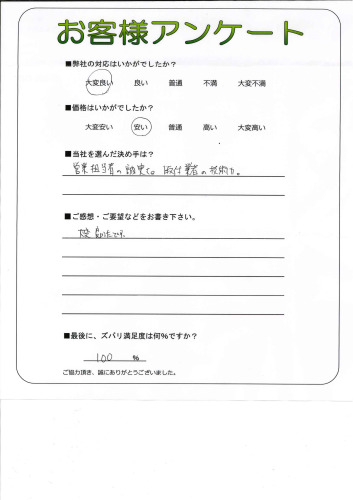 お客様アンケート
■弊社の対応はいかがでしたか?
大変良い 良い 普通 不満 大変不満
■価格はいかがでしたか?
大変安い 安い 普通 高い 大変高い
■当社を選んだ決め手は?
営業担当者の誠実さ。取付業者の技術力。
■ご感想・ご要望などをお書き下さい。
良かったです。
■最後に、ズバリ満足度は何%ですか?
100 %
ご協力頂き、誠にありがとうございました。